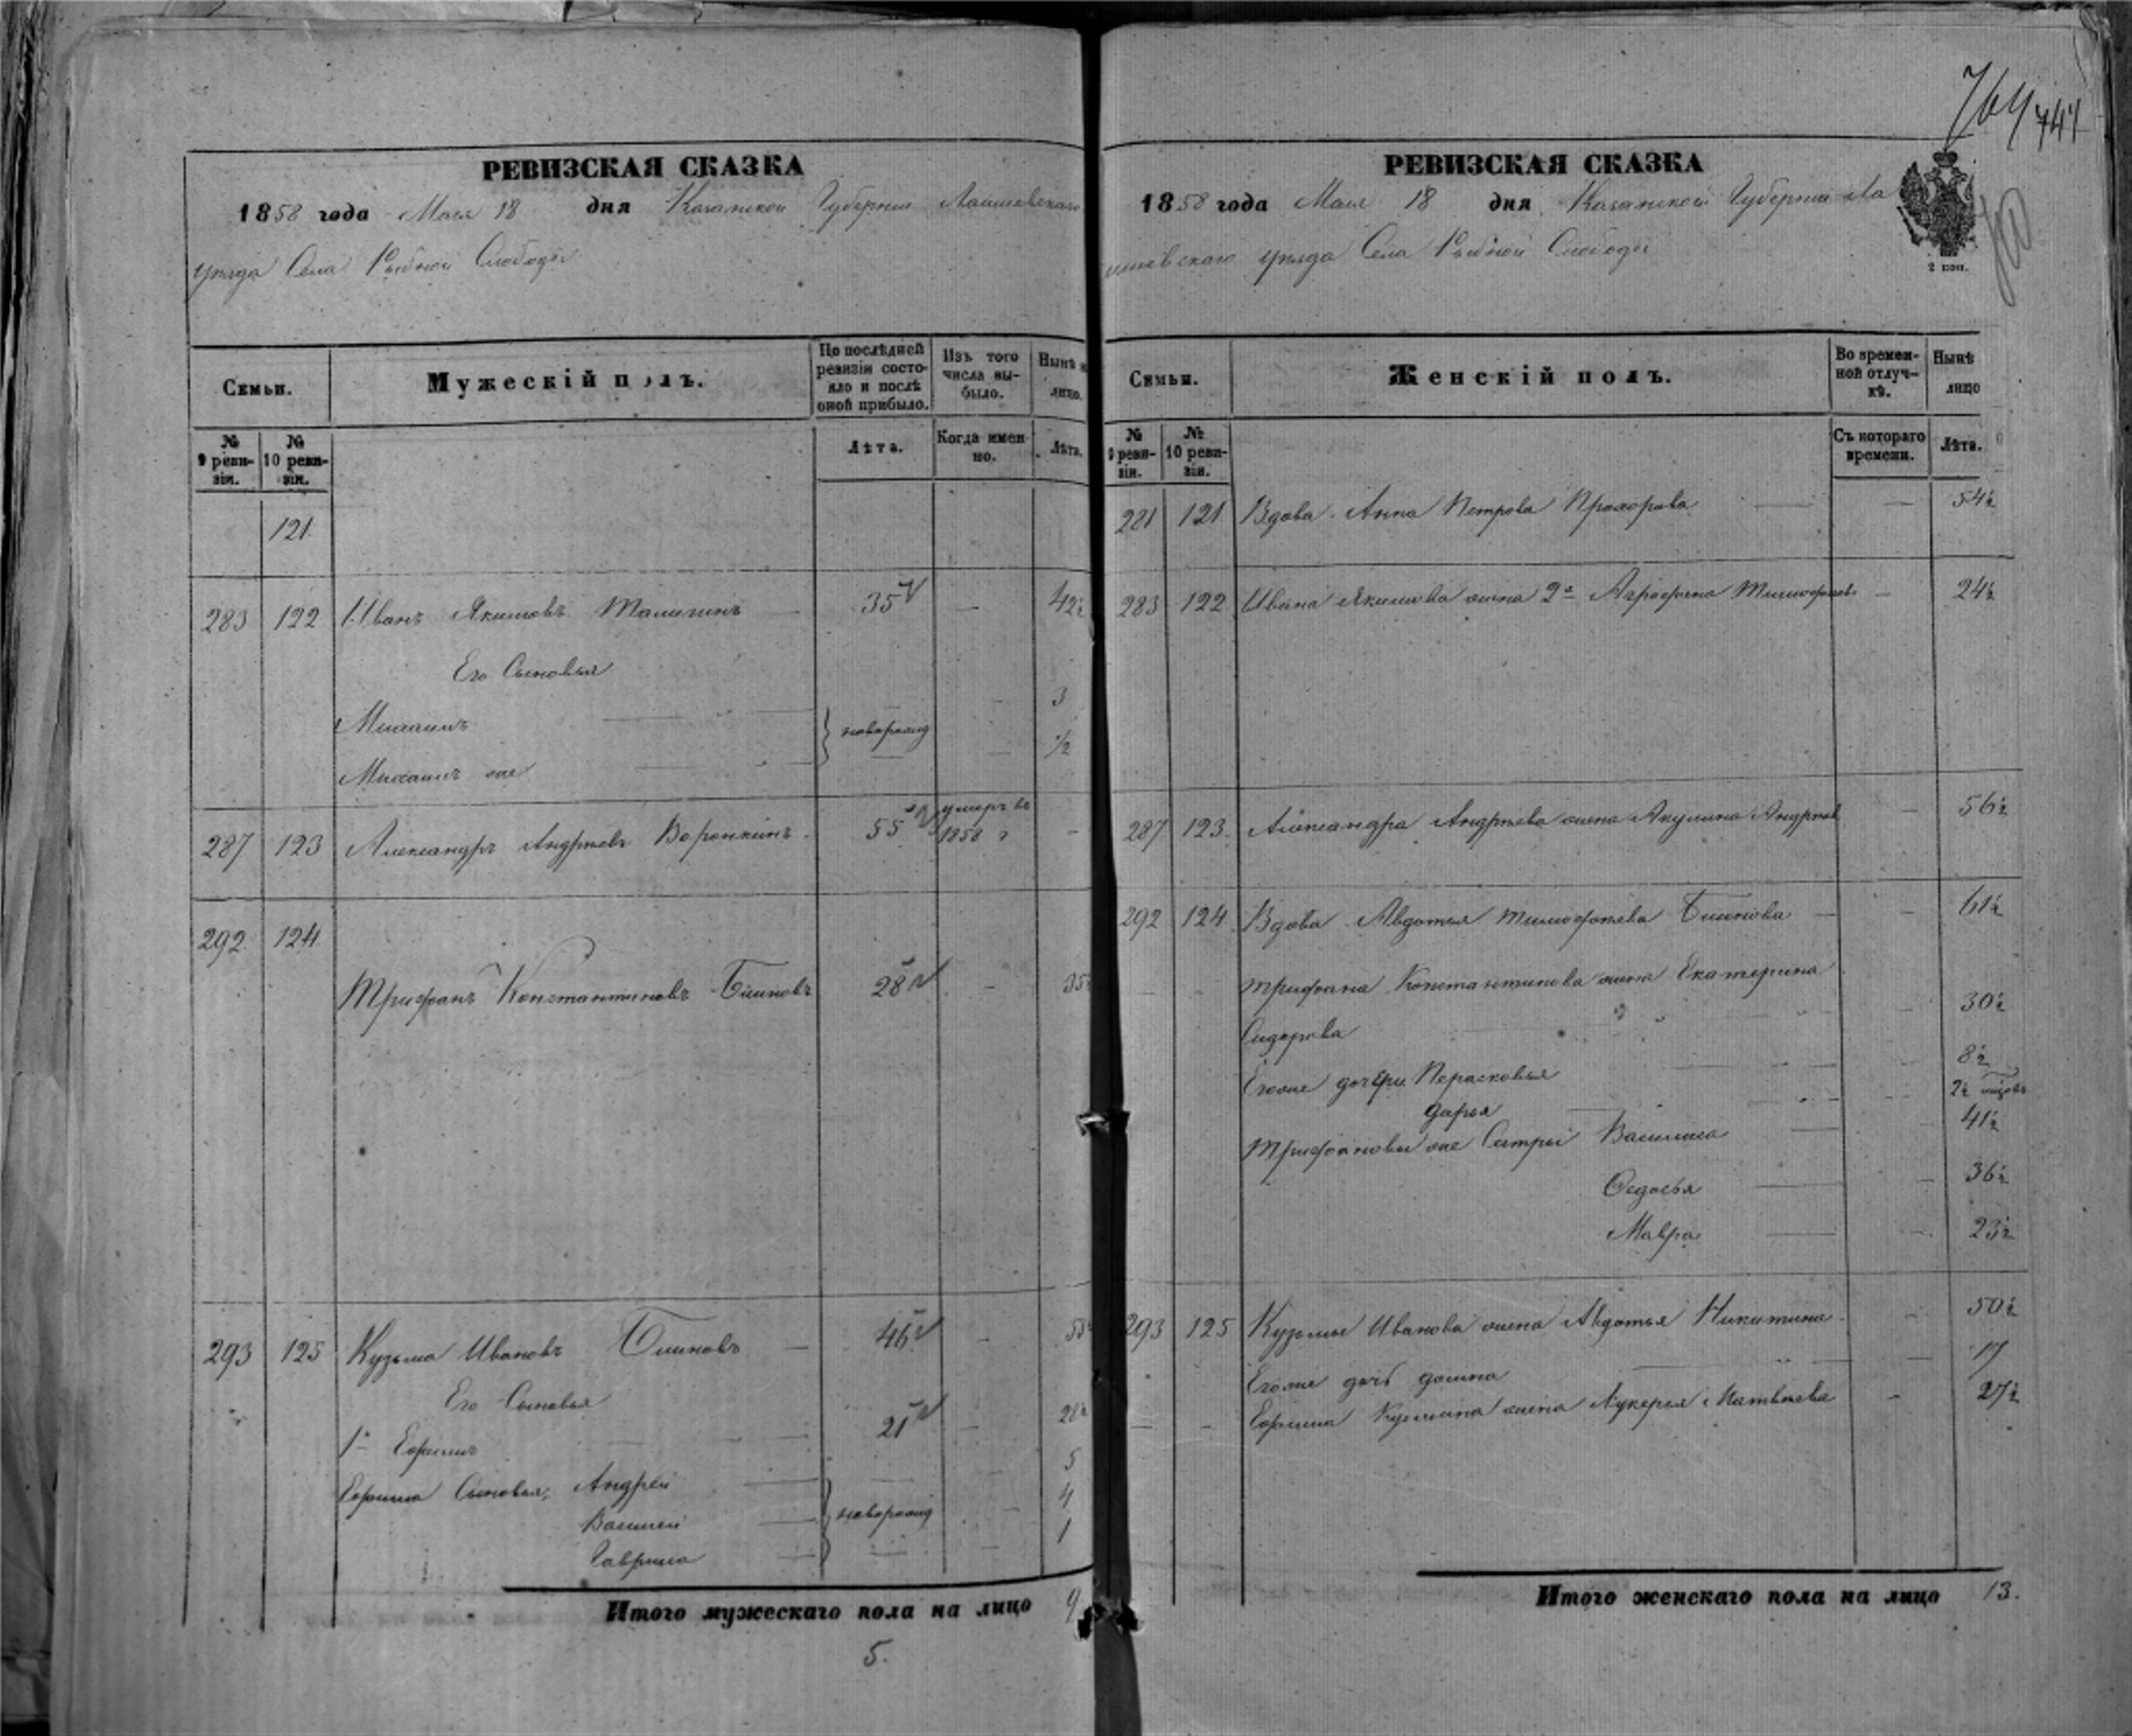 764 744
РЕВИЗСКАЯ СКАЗКА
1858 года Мая 18 дня Казанской Губернии Лаишевскаго
уѣзда Села Рыбной Слободы
Семьи. Мужескій полъ. По послѣдней ревизіи состояло и послѣ оной прибыло. Изъ того числа выбыло. Нынѣ на лицо.
№ 9 ревизіи. № 10 ревизіи. Лѣта. Когда именно. Лѣта.
121.
283 122 Иванъ Якимовъ 35 — 42
Его Сыновья
Михаилъ — 3
Михаилъ же } новорожд — 1/2
287 123 Александръ Андрѣевъ Воронкинъ 55 умеръ въ 1858 г —
292 124
Трифонъ Константиновъ Блиновъ 28 — 35
293 125 Кузьма Ивановъ Блиновъ — 46 — 53
Его Сыновья
1й Ефимъ — 21 — 28
Ефима Сыновья: Андрей — 5
Василій — } новорожд — 4
Гаврила — 1
Итого мужескаго пола на лицо 9
5.
РЕВИЗСКАЯ СКАЗКА
1858 года Мая 18 дня Казанской Губерніи Ла
ишевскаго уѣзда Села Рыбной Слободы
2 коп.
Семьи. Женскій полъ. Во временной отлучкѣ. Нынѣ лицо
№ 9 ревизіи. № 10 ревизіи. Съ котораго времени. Лѣта.
281 121 Вдова Анна Петрова Прохорова — 54
283 122 Ивана Якимова жена 2я Аграфена Тимофѣев — 24
287 123. Александра Андрѣева жена Акулина Андрѣев — 56
292 124 Вдова Авдотья Тимофѣева Блинова — 61
Трифона Константинова жена Екатерина
Сидорова — 30
Егоже дочери Парасковья — 8
Дарья — 2
Трифоновы же Сестры Василиса — 41
Федосья — 36
Мавра — 23
293 125 Кузьмы Иванова жена Авдотья Никитина — 50
Егоже дочь Домна — 17
Ефима Кузьмина жена Лукерья Матвѣева — 27
Итого женскаго пола на лицо 13.